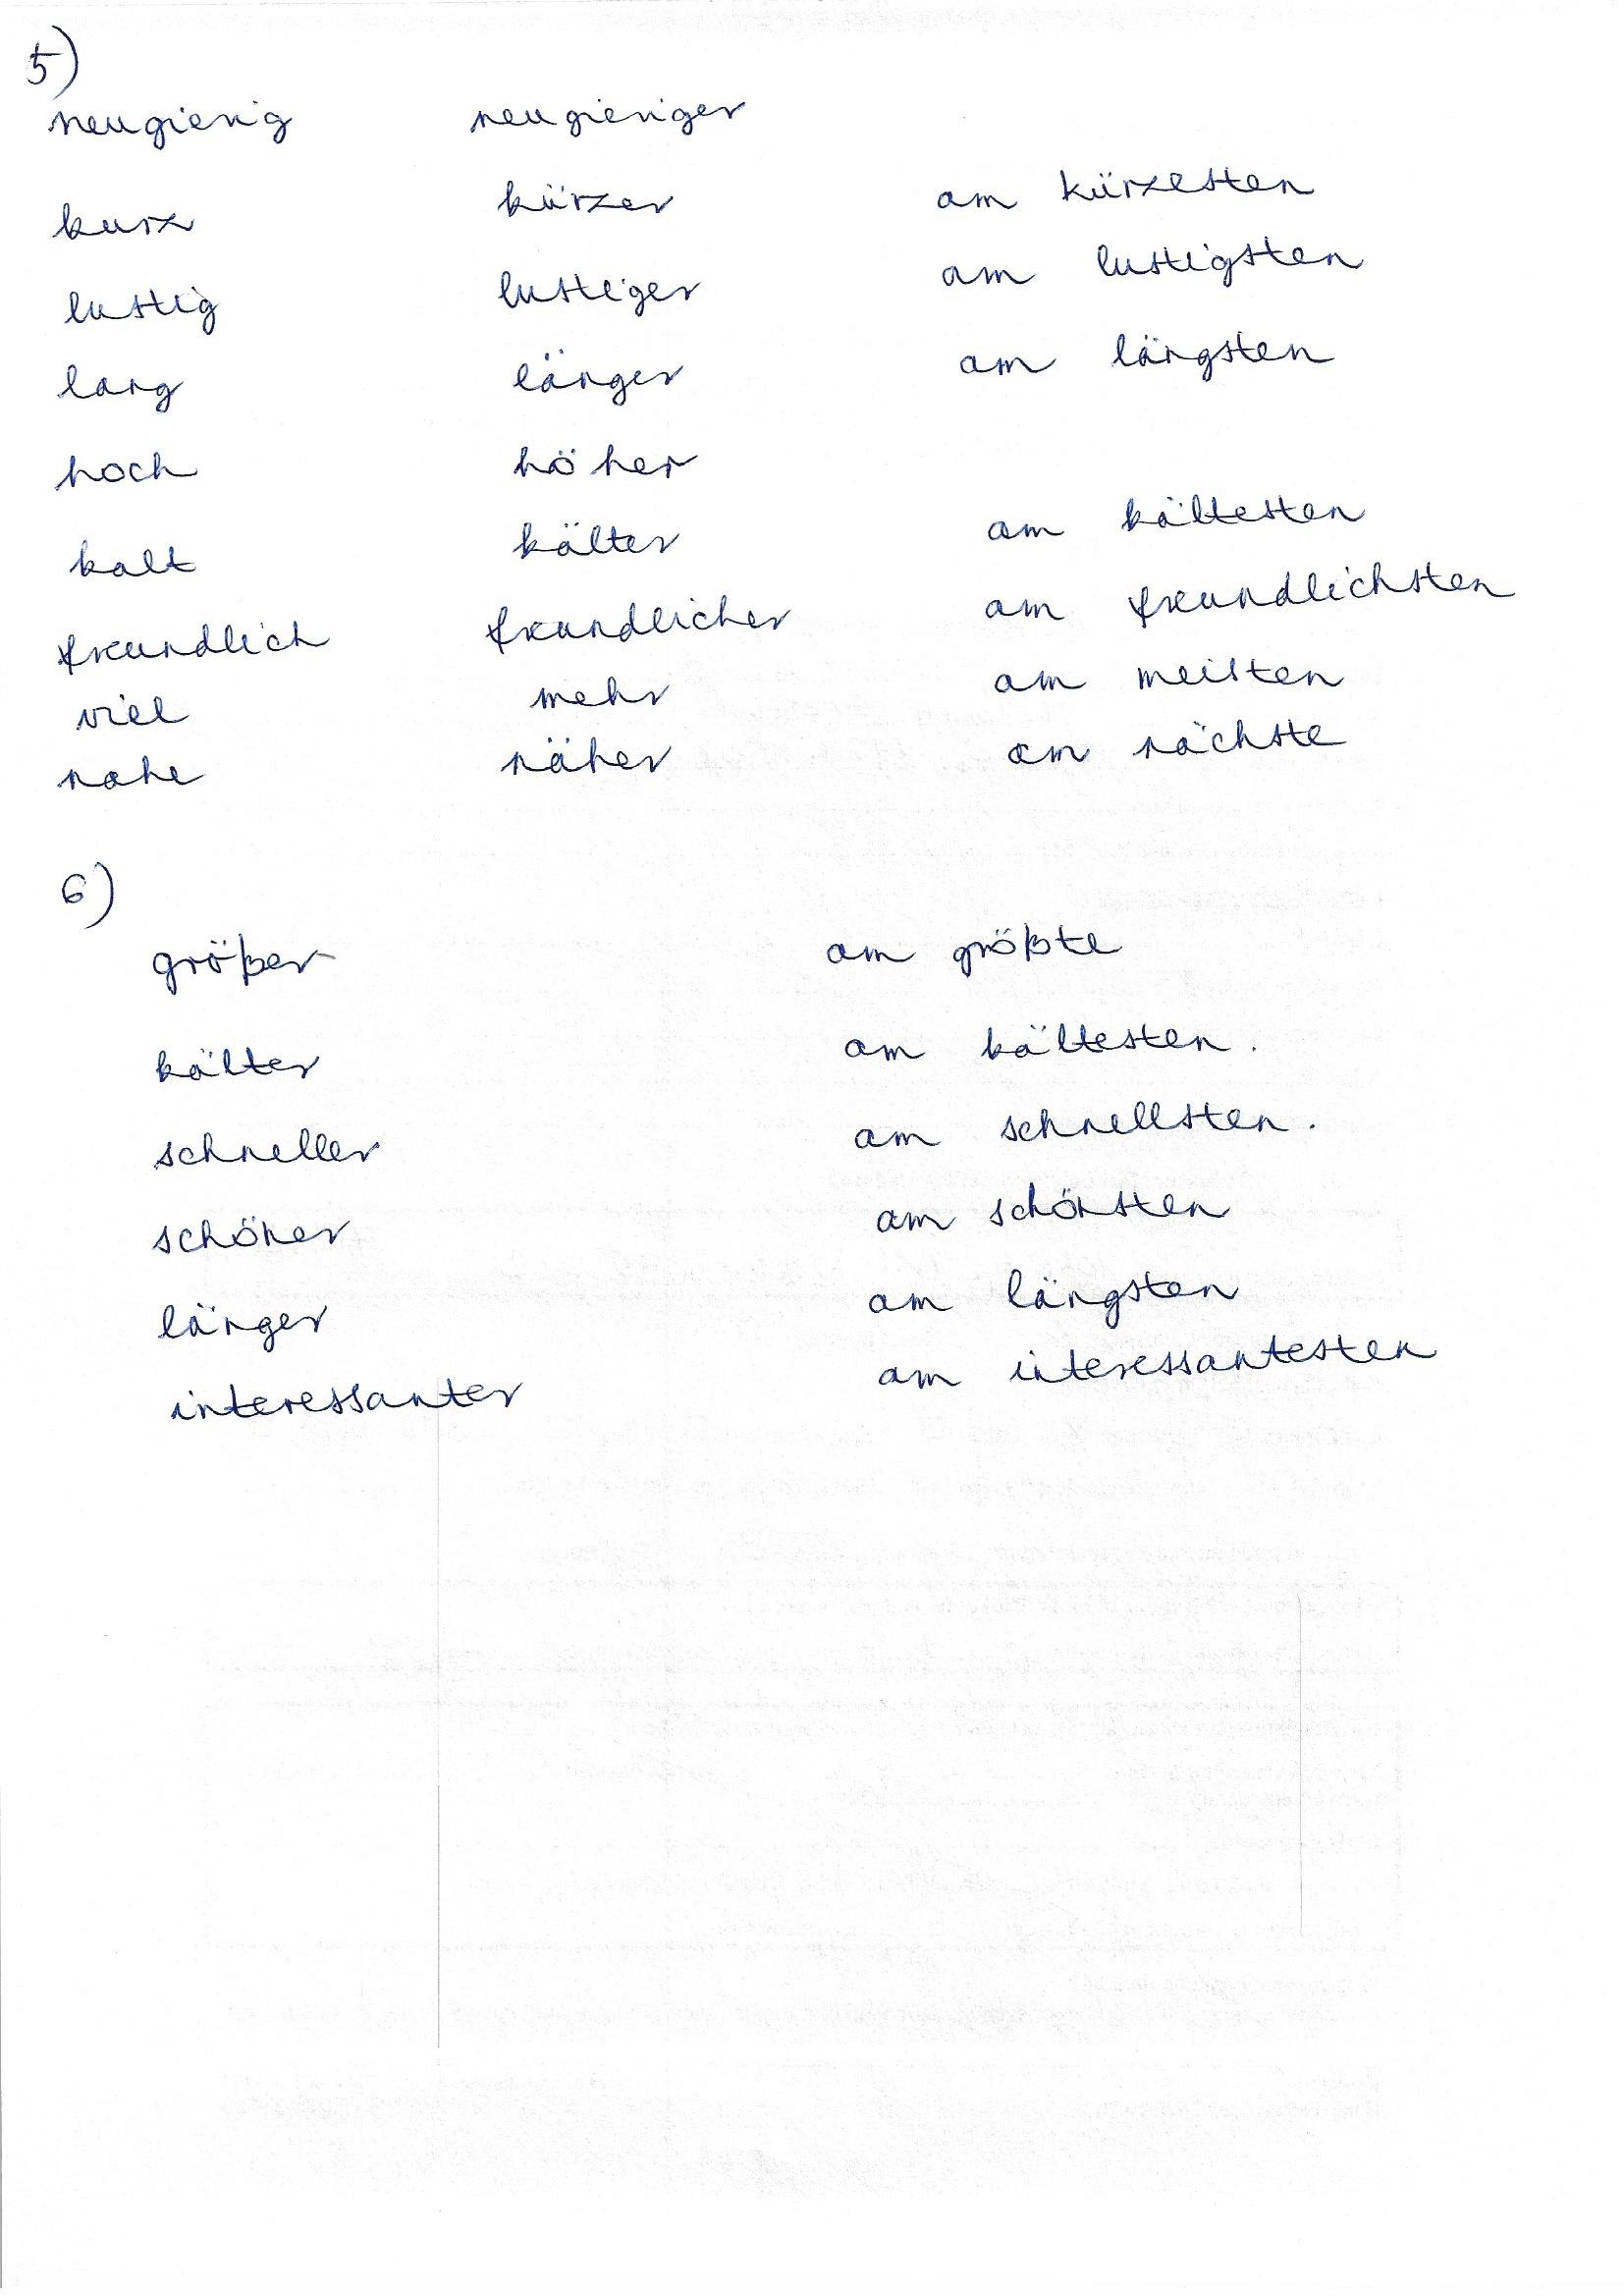 5)
neugierig neugieriger
kurz kürzer am kürzesten
lustig lustiger am lustigsten
lang länger am längsten
hoch höher
kalt kälter am kältesten
freundlich freundlicher am freundlichsten
viel mehr am meisten
nahe näher am nächste
6)
größer am größte
kälter am kältesten.
schneller am schnellsten.
schöner am schönsten
länger am längsten
interessanter am interessantesten